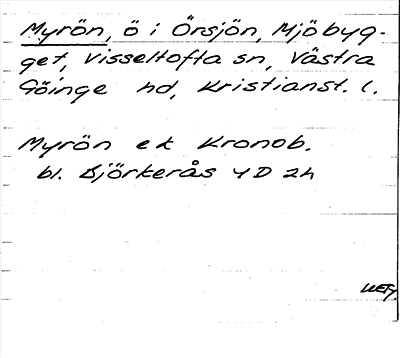 Myrön, ö i Örsjön, Mjöbyg-
get, Visseltofta sn, Västra
Göinge hd, Kristianst. l.
Myrön ek Kronob.
bl. Björkerås 4D 2h